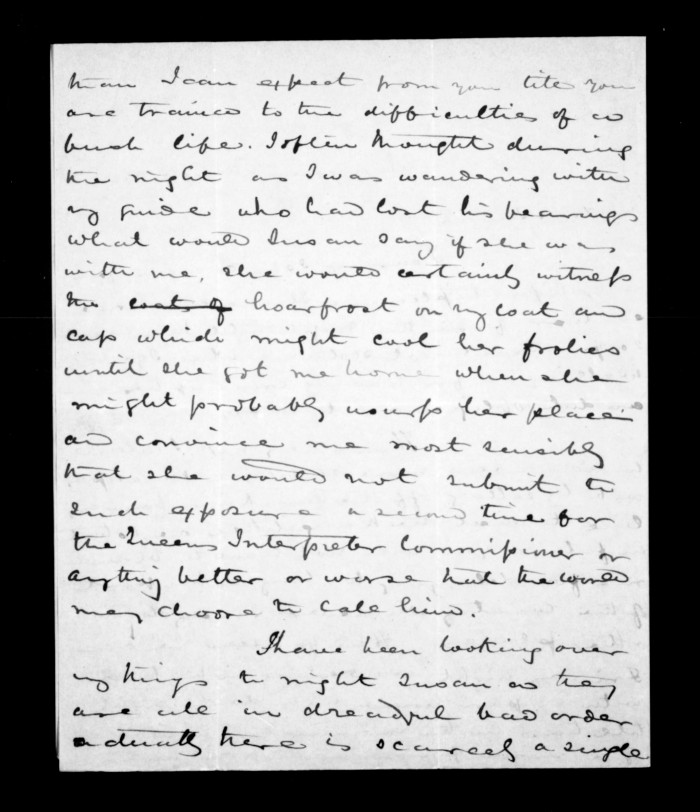 than I can expect from you till you
are trained to the difficulties of a
bush life. I often thought during
the night as I was wandering with
my guide who had lost his bearings
what would Susan say if she was
with me, she would certainly witness
the coats of hoarfrost on my coat and
cap which might cool her frolics
until she got me home when she
might probably usurp her place
and convince me most sensibly
that she would not submit to
such exposure a second time for
the Queens Interpreter Commissioner or
anything better or worse that the world
may choose to call him.
I have been looking over
my things to night Susan as they
are all in dreadful bad order
actually there is scarcely a single